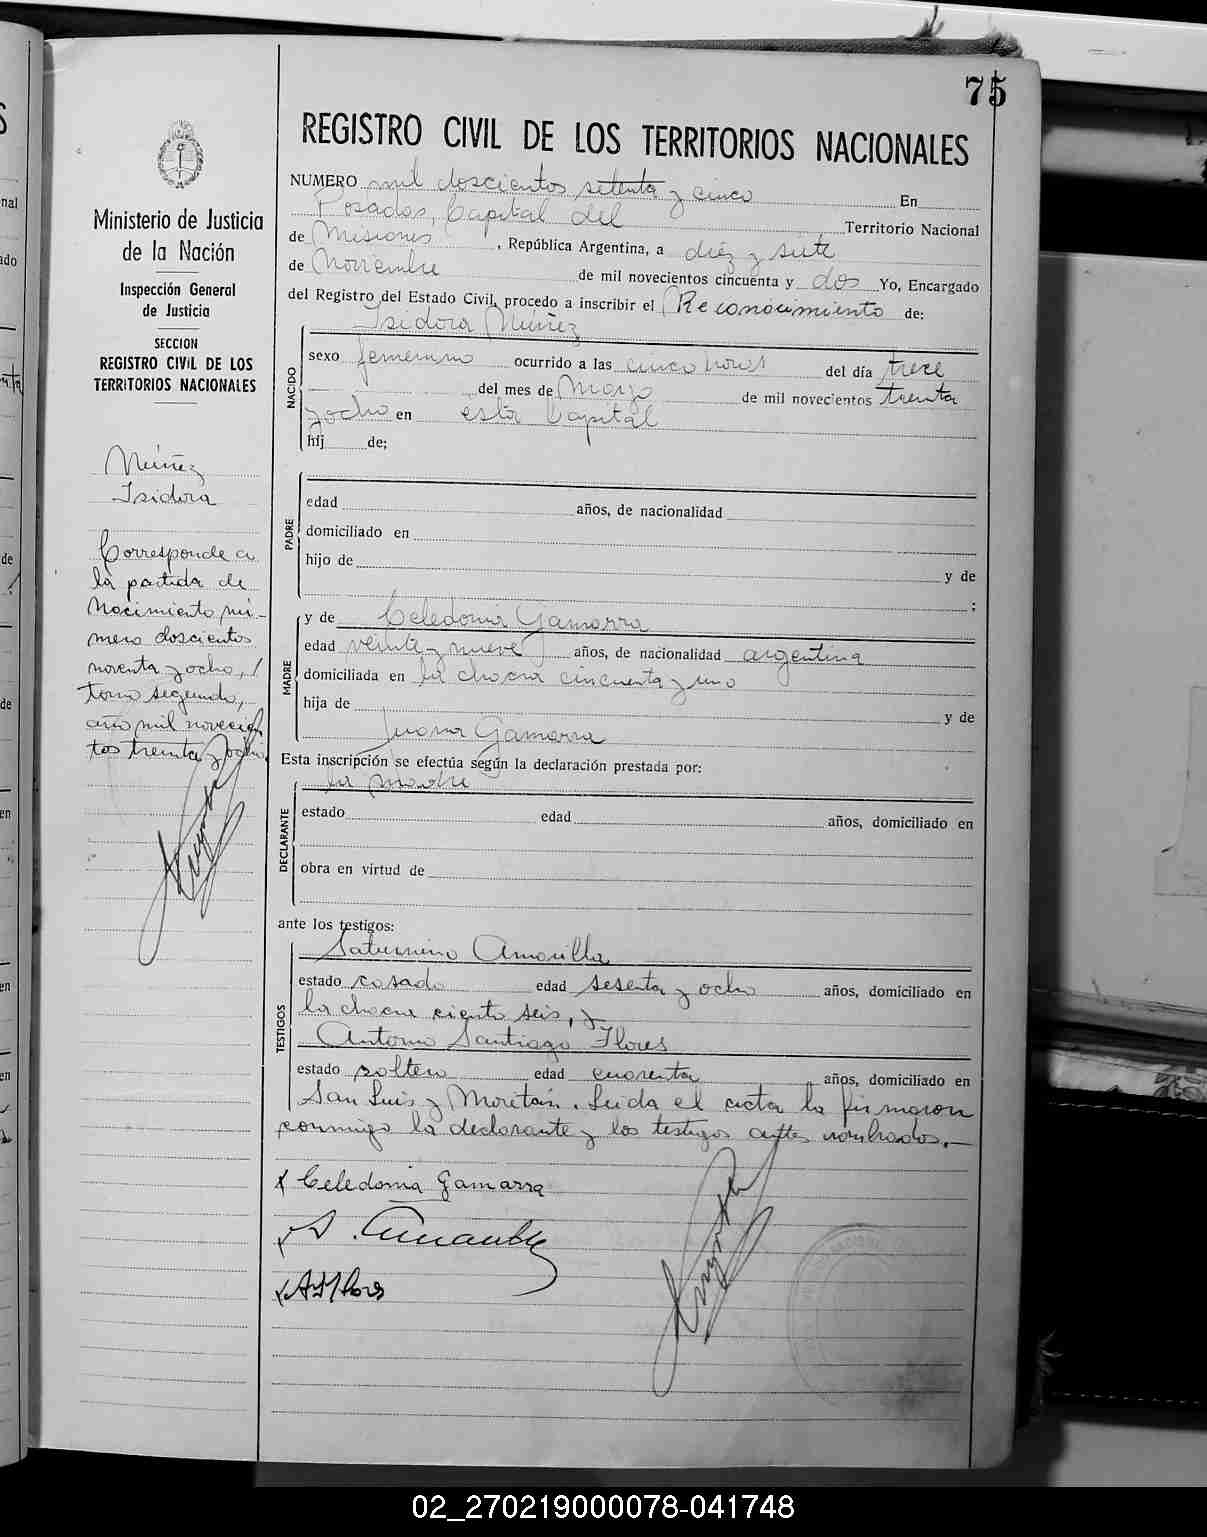 75
REGISTRO CIVIL DE LOS TERRITORIOS NACIONALES
Ministerio de Justicia
de la Nación
Inspección General
de Justicia
SECCION
REGISTRO CIVIL DE LOS
TERRITORIOS NACIONALES
Núñez
Isidora
Corresponde a
la partida de
Nacimiento nú-
mero doscientos
noventa y ocho, /
tomo segundo,
año mil novecien
tos treinta y ocho.
NUMERO mil doscientos setenta y cinco En
Posadas, Capital del Territorio Nacional
de Misiones, República Argentina, a diez y siete
de Noviembre de mil novecientos cincuenta y dos Yo, Encargado
del Registro del Estado Civil, procedo a inscribir el Reconocimiento de:
Isidora Núñez
NACIDO
sexo femenino ocurrido a las cinco horas del día trece
del mes de Mayo de mil novecientos treinta
y ocho en esta Capital
hij de;
PADRE
edad años, de nacionalidad
domiciliado en
hijo de y de
;
MADRE
y de Celedonia Gamarra
edad veinte y nueve años, de nacionalidad argentina
domiciliada en la chacra cincuenta y uno
hija de y de
Juana Gamarra
Esta inscripción se efectúa según la declaración prestada por:
la madre
DECLARANTE
estado edad años, domiciliado en
obra en virtud de
ante los testigos:
TESTIGOS
Saturnino Amarilla
estado casado edad sesenta y ocho años, domiciliado en
la chacra ciento seis, y
Antonio Santiago Flores
estado soltero edad cuarenta años, domiciliado en
San Luis y Moretán. Leida el acta la firmaron
conmigo la declarante y los testigos antes nombrados.-
x Celedonia Gamarra
x S. Amarilla
x ASFlores
02_270219000078-041748